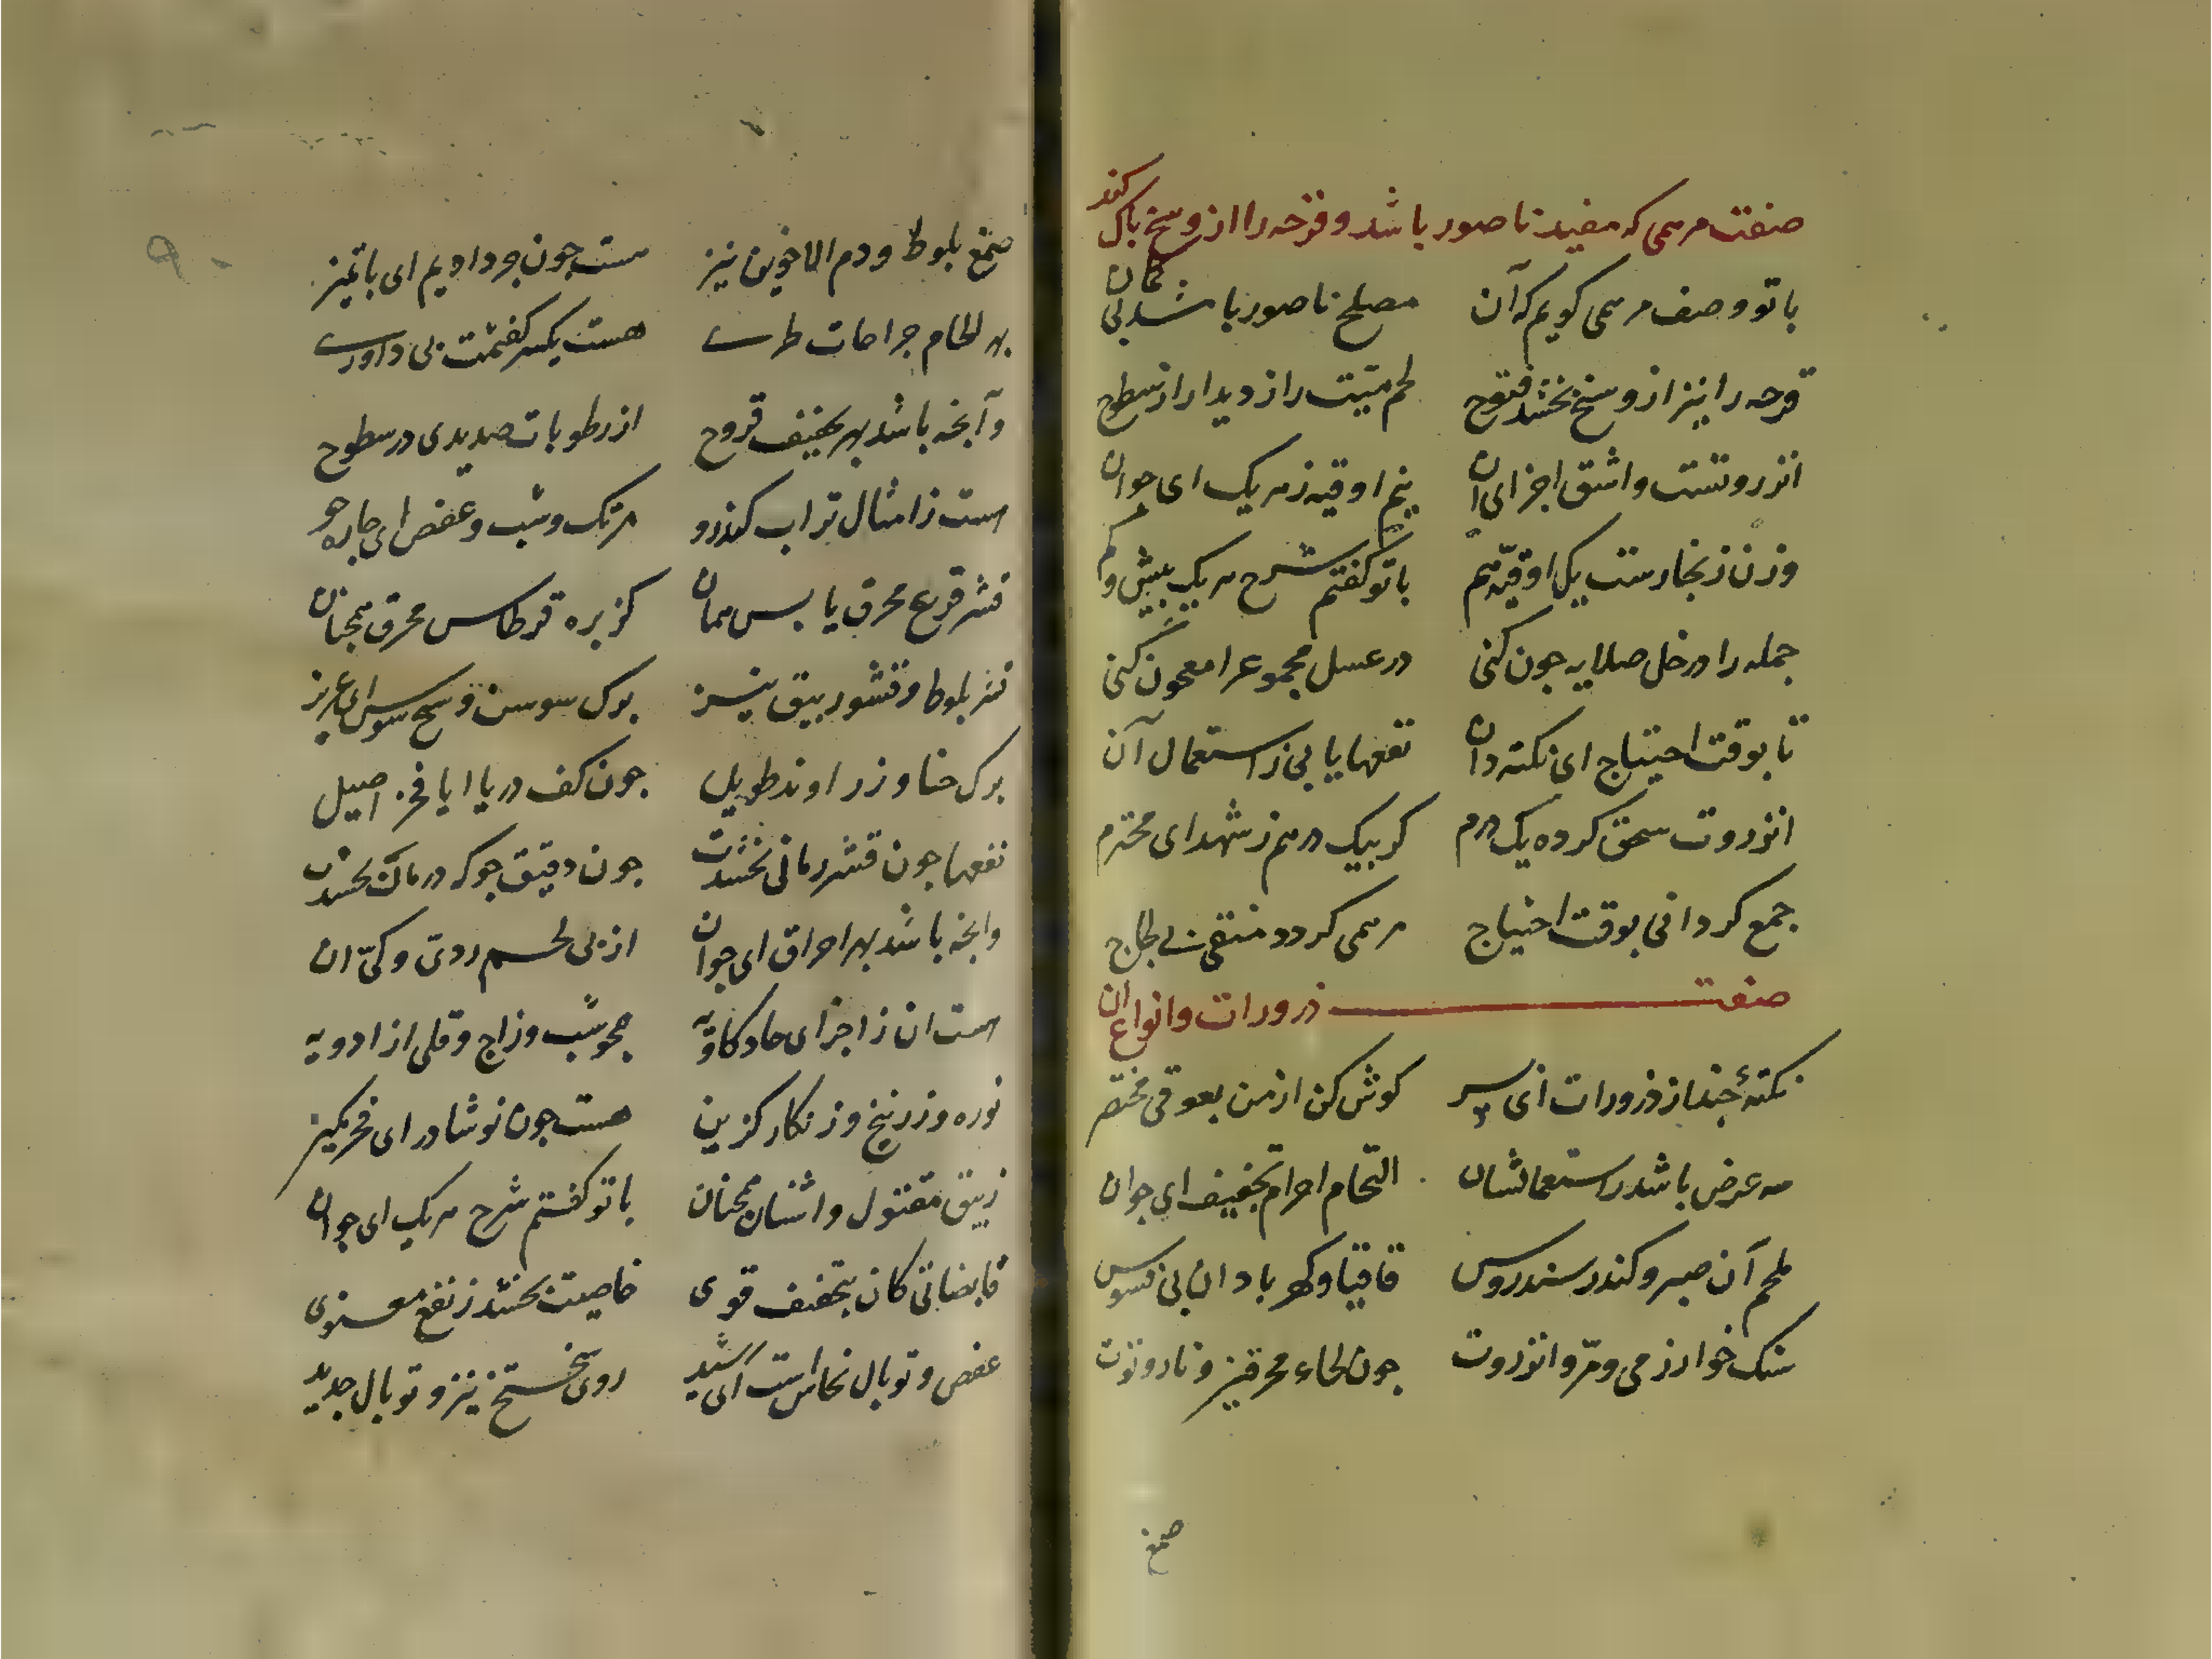 صنعت مرهمی که مفید ناصور باشد و قرحه را از وسخ باک کند
با تو وصف مرهمی کویم که آن مصلح ناصور باشد بی کمان
قرحه را نیز از وسخ بخشد فتوح لحم میّت را زدید از سطوح
انزروتست و اشق اجزای ان نیم اوقیه ز هریک ای جوان
وزن زنجارست یک اوقیّه هم با تو کفتم شرح هریک بیش و کم
جمله را در خل صلایه جون کنی در عسل مجموع را معجون کنی
تا بوقت احتیاج ای نکته دان نفعها یابی ز استعمال آن
انزروت سحق کرده یک درم کر بیک درهم ز شهد ای محترم
جمع کردانی بوقت احتیاج مرهمی کردد منقی بی لجاج
صنعت ذرورات و انواع ان
نکتهٔ جند از ذرورات ای پسر کوش کن از من بعو قی مختصر
سه عرض باشد ز استعمالشان التحام احرام تجفیف ای جوان
ملحم آن صبر و کندر سندروس قاقیا و کهربا دان بی فسوس
سنک خوارزمی و مرّ و انزروت جون لحاء محرقیز و نار و توت
صمغ
صمغ بلوط و دم الاخوین نیز هست جون مرداویم ای با تمیز
بهر لحام جراحات طری هست یکسر کفتمت بی داوری
و آنجه باشد بهر تجفیف قروح از رطوبات صدیدی در سطوح
هست ز امثال تراب کندرو مرتک و شب و عفص ای جاره جو
قشر قرع محرق یابس همان کزبره قرطاس محرق همجنان
قشر بلوط و قشور بیق نیز برک سوسن و سخ سوس ای عزیز
برک حنا و زراوند طویل جون کف دریا ایا فخر اصیل
نفعها جون قشر رمانی بخشدت جون دقیق جو که درمان بخشدت
وانجه باشد بهر احراق ای جوان از بی لحم ردی و کیّ ان
هست ان ز اجزای حاد کاویه همجو شب و زاج و قلی از ادویه
نوره و زرنیخ و زنکار کزین هست جون نوشادر ای فخر مکین
زیبق مقتول و اشنان همجنان با تو کفتم شرح هریک ای جوان
قابضاتی کان بتجفیف قوی خاصیت بخشد ز نفع معنوی
عفص و توبال نحاس است ای رشید روی سختج نیز و توبال حدید